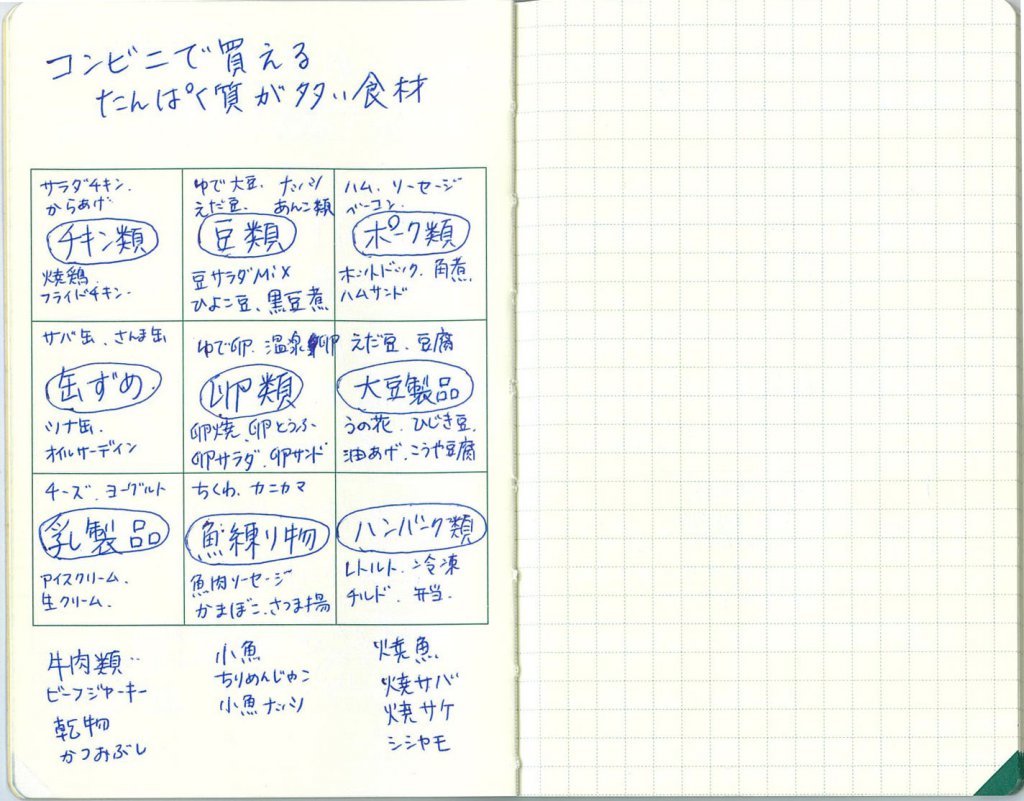 コンビニで買える
たんぱく質が多い食材
サラダチキン.
からあげ.
チキン類
焼鶏.
フライドチキン.
ゆで大豆. ナッツ
えだ豆. あんこ類
豆類
豆サラダMiX
ひよこ豆、黒豆煮
ハム、ソーセージ
ベーコン.
ポーク類
ホットドック. 角煮.
ハムサンド
サバ缶、さんま缶
缶ずめ
ツナ缶.
オイルサーディン
ゆで卵. 温泉卵
卵類
卵焼、卵とうふ
卵サラダ. 卵サンド
えだ豆、豆腐
大豆製品
うの花. ひじき豆.
油あげ.こうや豆腐
チーズ、ヨーグルト
乳製品
アイスクリーム.
生クリーム.
ちくわ、カニカマ
魚練り物
魚肉ソーセージ
かまぼこ.さつま揚
ハンバーグ類
レトルト. 冷凍
チルド. 弁当.
牛肉類..
ビーフジャーキー
乾物
かつおぶし
小魚
ちりめんじゃこ
小魚ナッツ
焼魚
焼サバ
焼サケ
シシャモ